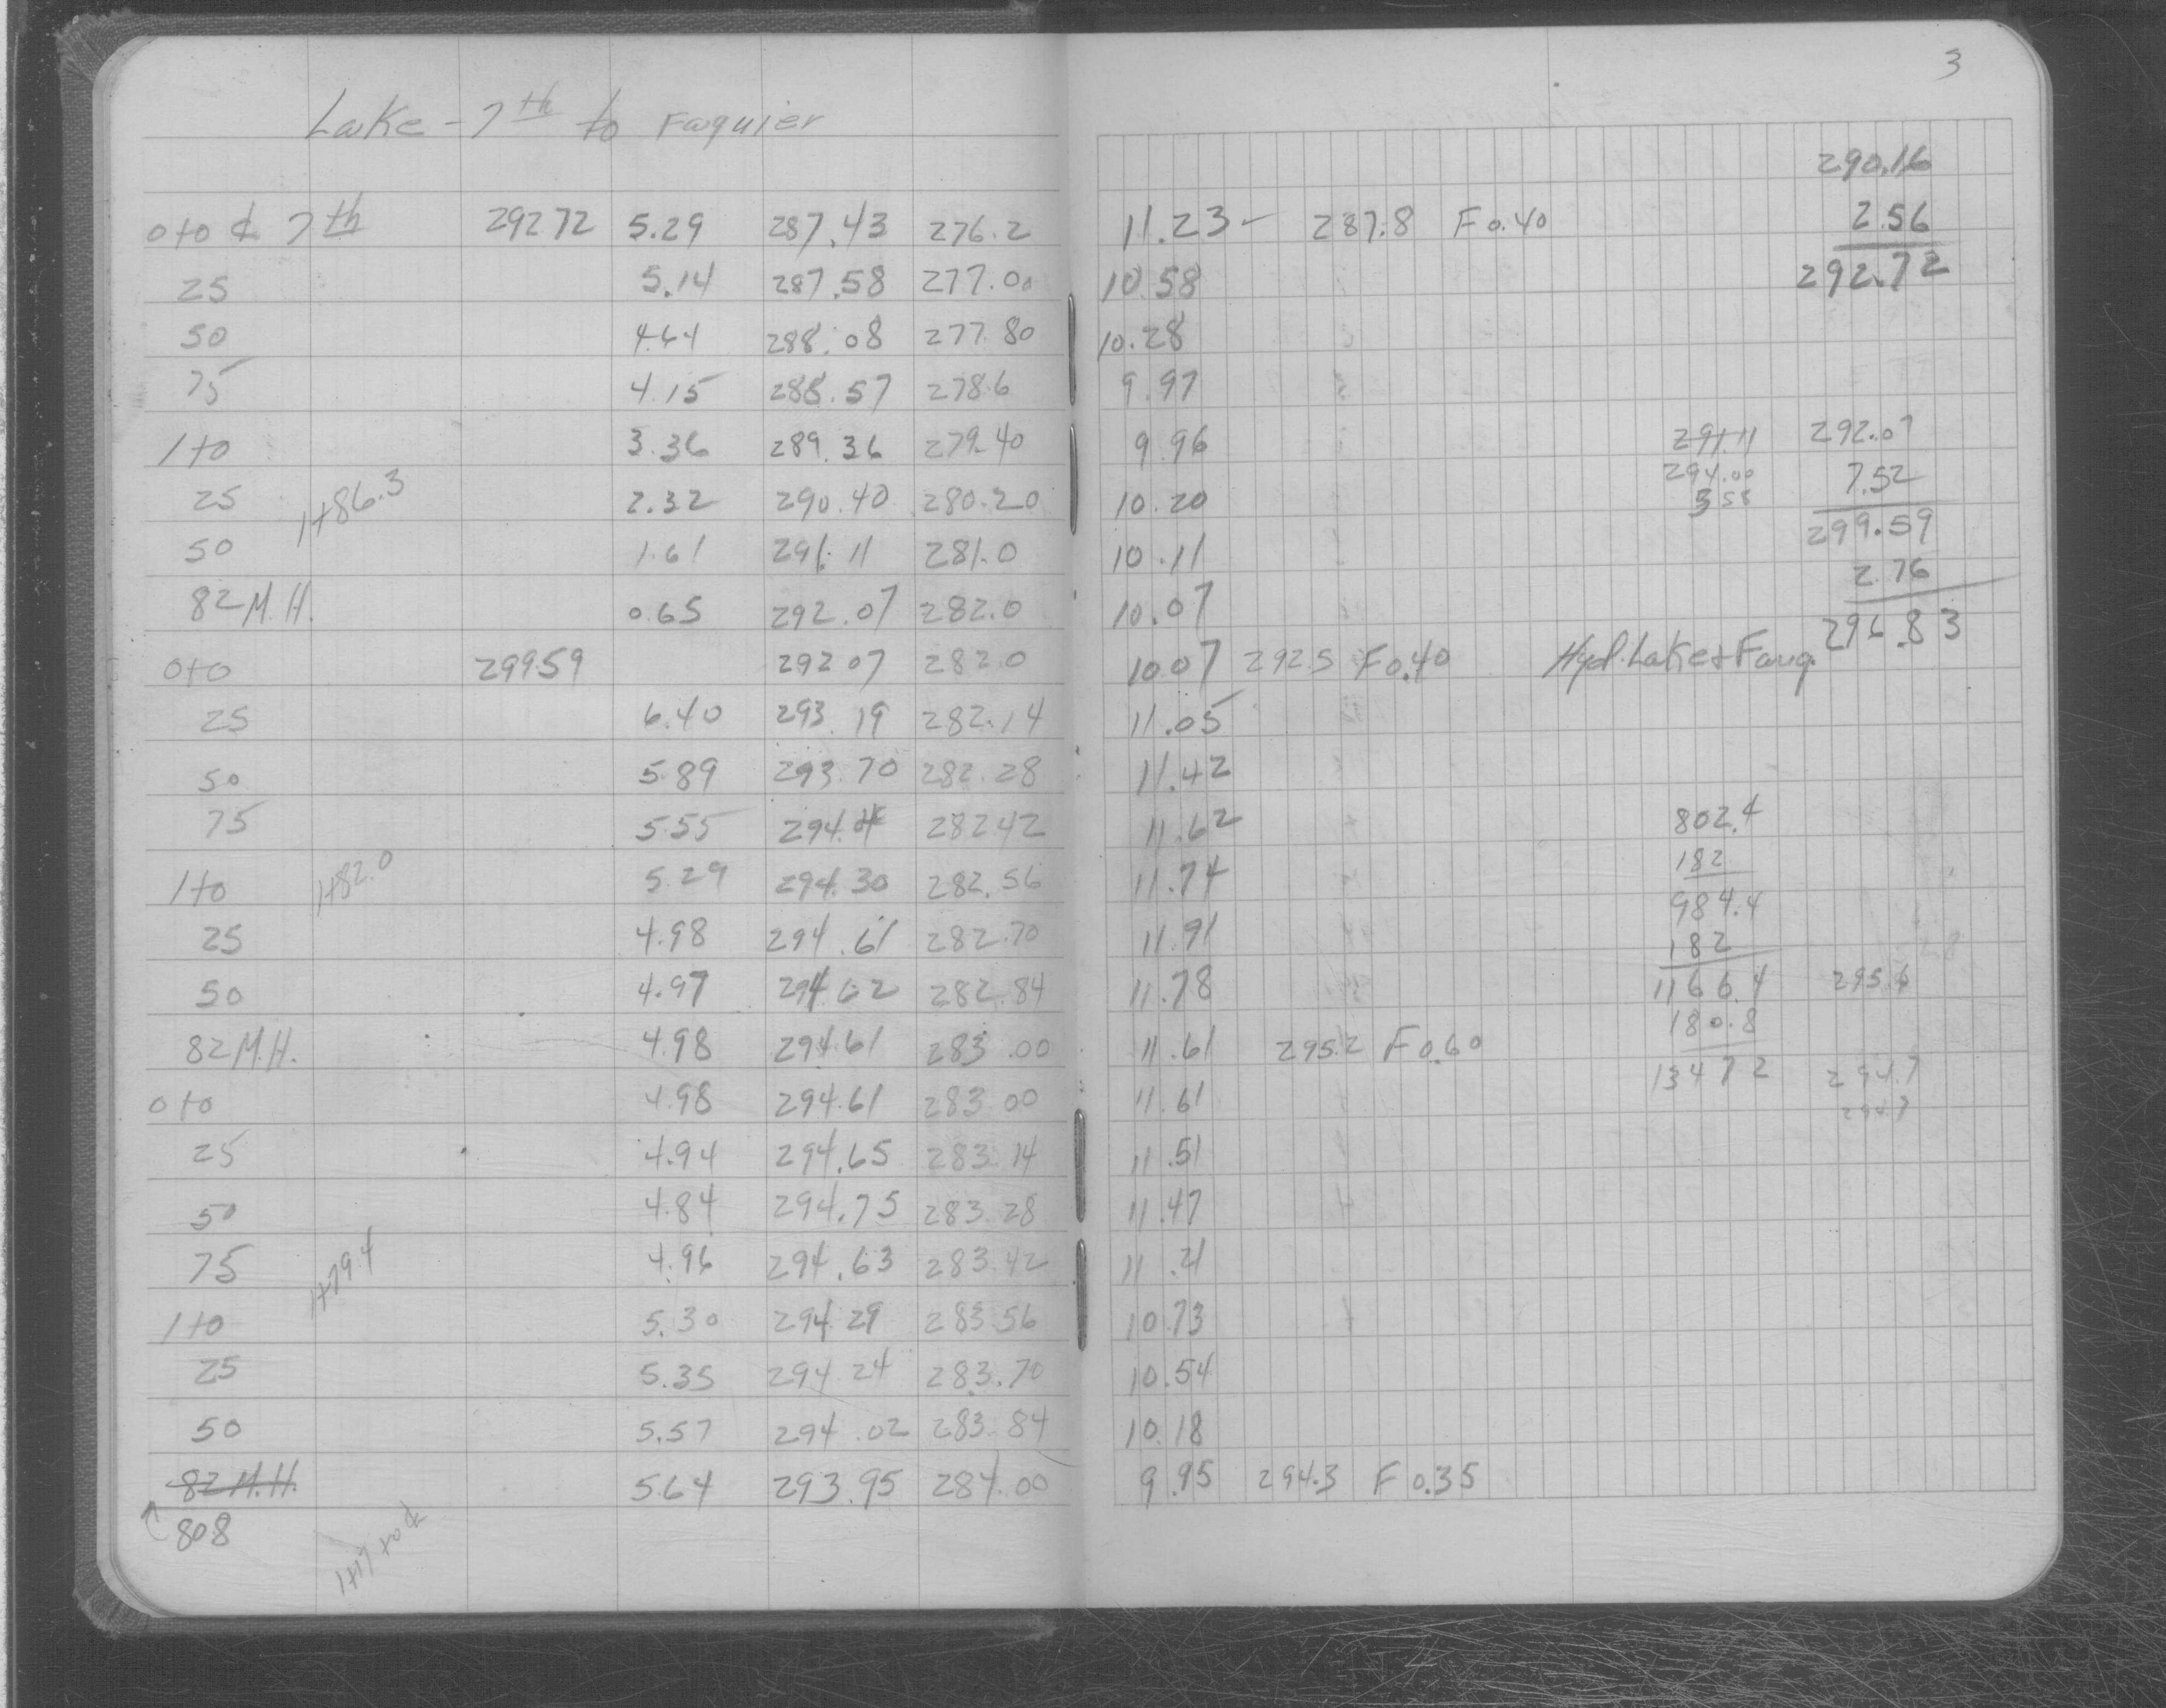 3
Lake - 7th to Faquier
290.16
0+0 ℄ 7th 292 72 5.29 287.43 276.2 11.23 - 287.8 F 0.40 2.56
25 5.14 287.58 277.00 10.58 292.72
50 4.64 288.08 277.80 10.28
75 4.15 288.57 278.6 9.97
1+0 3.36 289.36 279.40 9.96 291.11 292.07
1+86.3
25 2.32 290.40 280.20 10.20 294.00 7.52
50 1.61 291.11 281.0 10.11 299.59
2.76
82 M.H. 0.65 292.07 282.0 10.07 296.83
0+0 299 59 292 07 282.0 10 07 292.5 F 0.40 Hyd. Lake + Fauq.
25 6.40 293.19 282.14 11.05
50 5.89 293.70 282.28 11.42
75 5.55 294.04 282 42 11.62 802.4
1+0 1+82.0 5.29 294.30 282.56 11.74 182
984.4
25 4.98 294.61 282.70 11.91 182
50 4.97 294 62 282.84 11.78 1166.4 295.6
180.8
82 M.H. 4.98 294.61 283.00 11.61 295.2 F 0.60
0+0 4.98 294.61 283 00 11.61 1347 2 294.7
294.7
25 4.94 294.65 283.14 11.51
50 4.84 294.75 283.28 11.47
75 4.96 294.63 283.42 11.21
1+79.4
1+0 5.30 294.29 283 56 10.73
25 5.35 294 24 283.70 10.54
50 5.57 294.02 283.84 10.18
82 M.H. 5.64 293.95 284.00 9.95 294.3 F 0.35
808
1+17 to ℄